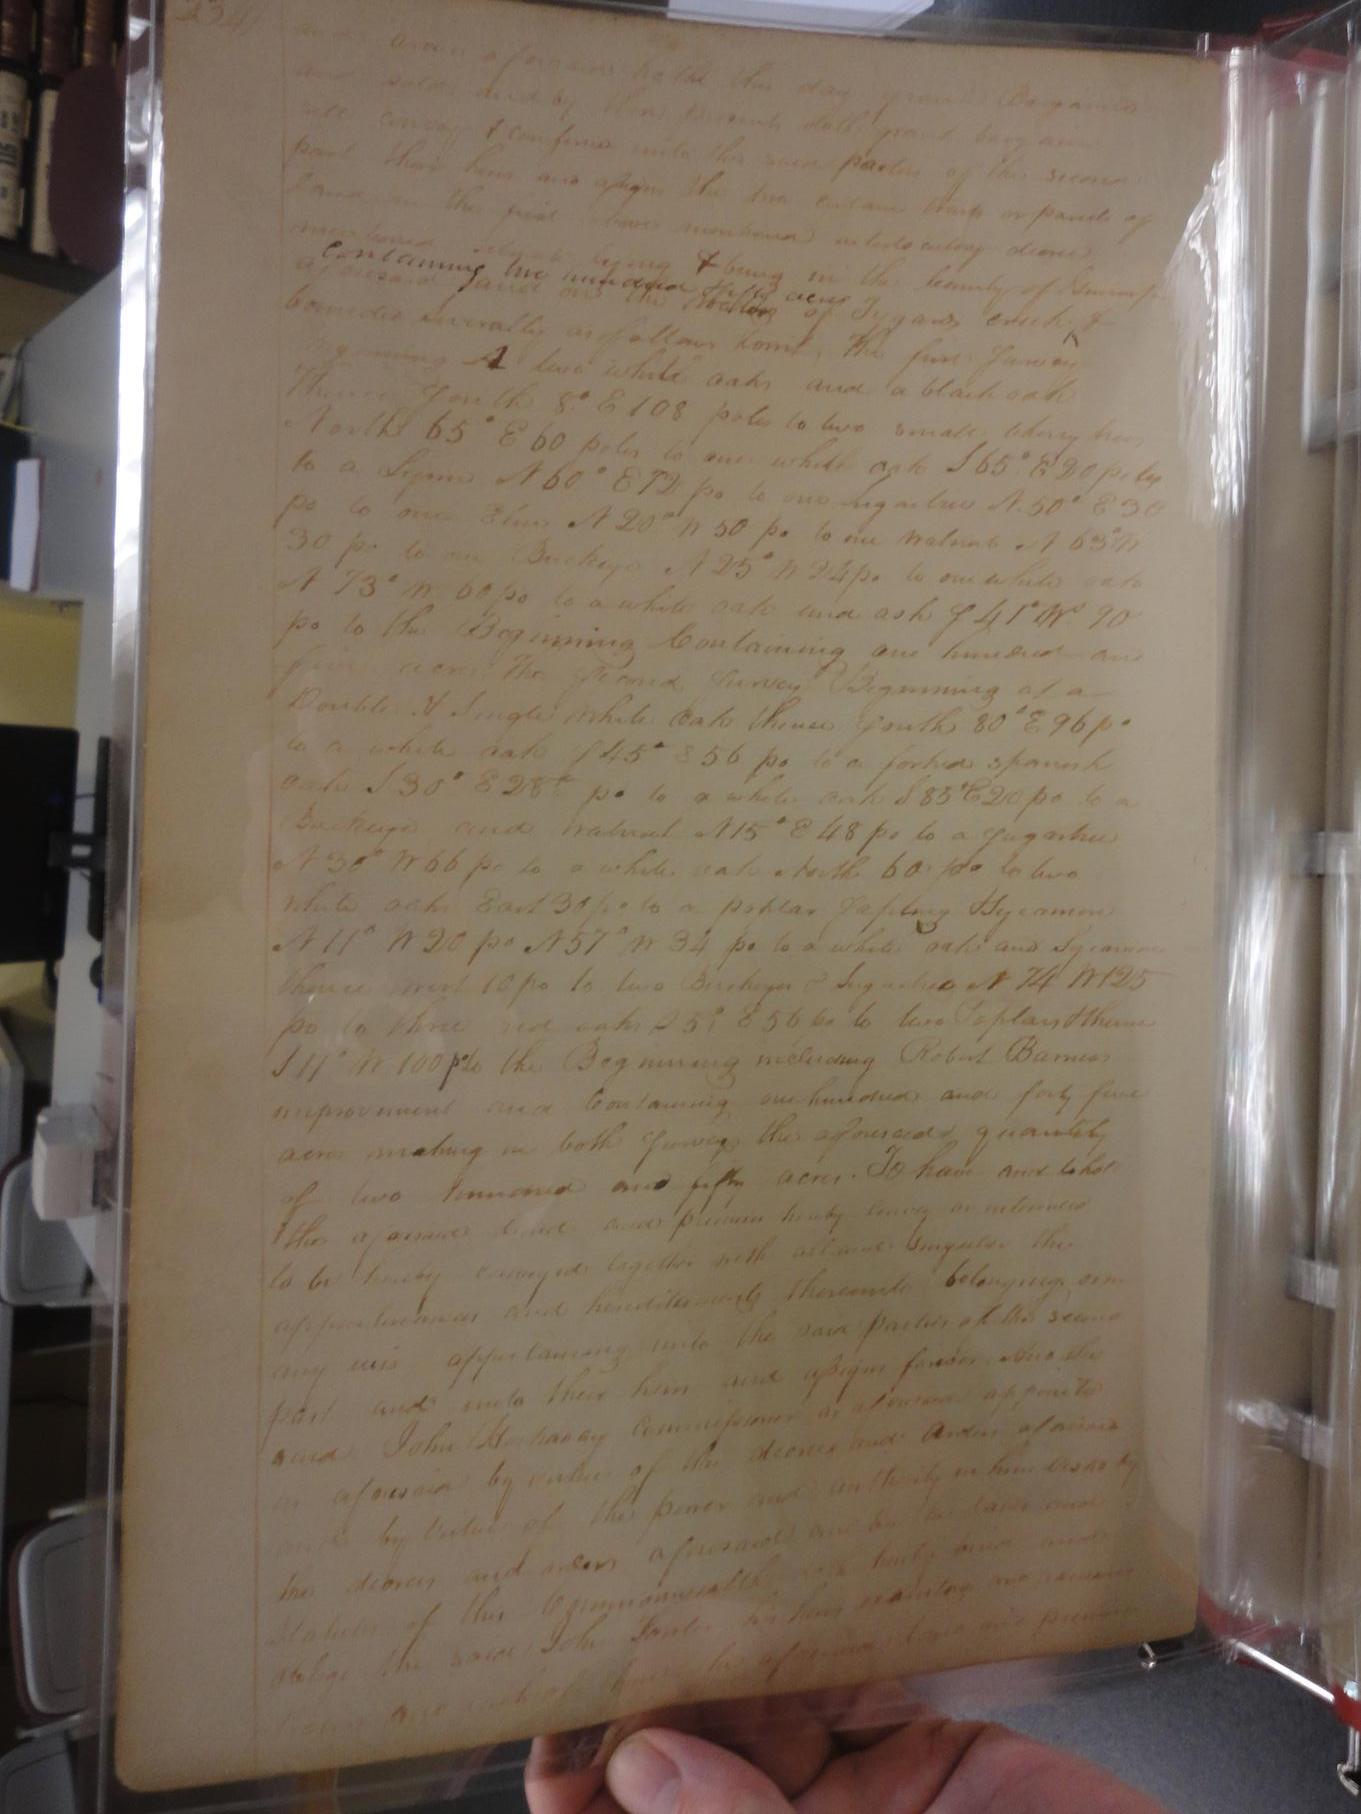 234
and orders aforesaid hath this day given Bargained
and sold and by these presents doth grant bargain
sell convey & confirm unto the said parties of the second
part their heirs and assigns the two certain tracts or parcels of
land in the first above mentioned interlocutory decree
mentioned situate lying & being in the County of Greenup
containing two hundred fifty acres
aforesaid and on the waters of Tygarts creek &
bounded severally as follows towit, The first Survey
Beginning At two white oaks and a black oak
Thence South 8° E 108 poles to two small cherry trees
North 65° E 60 poles to one white oak S 65° E 20 poles
to a Lynn N 60° E 72 po to one Sugartree N. 50° E 30
po to one Elm N 20° W 50 po to one walnut N 63° W
30 po to one Buckeye N 25° W 24 po to one white oak
N 73° W 60 po to a white oak and ash S 41° W 90
po to the Beginning Containing one hundred and
five acres The Second Survey Beginning at a
Double & Single white oak thence South 80° E 96 po
to a white oak S 45° E 56 po to a forked spanish
oak S 30° E 28 po to a white oak S 85° E 20 po to a
Buckeye and walnut N 15° E 48 po to a Sugartree
N 30° W 66 po to a white oak North 60 po to two
white oaks East 30 po to a poplar Sapling Sycamore
N 11° W 20 po N 57° W 34 po to a white oak and Sycamore
thence west 10 po to two Buckeyes & Sugartree N 74 W 125
po to three red oaks S 5° E 56 po to two Poplars thence
S 11° W 100 po to the Beginning including Robert Barnes
improvement and Containing one hundred and forty five
acres making in both Surveys the aforesaid quantity
of two hundred and fifty acres. To have and to hold
the aforesaid land and premises hereby convey or intended
to be hereby conveyed together with all and singular the
appurtenances and hereditaments thereunto belonging or in
any wise appertaining unto the said parties of the second
part and unto their heirs and assigns forever And the
said John Hockaday Commissioner as aforesaid appointed
as aforesaid by virtue of the decrees and orders aforesaid
and by virtue of the power and authority in him vested by
the decrees and orders aforesaid and by the laws and
Statutes of this Commonwealth, doth hereby bind and
oblige the said John Fowler his heirs
the aforesaid land and premises